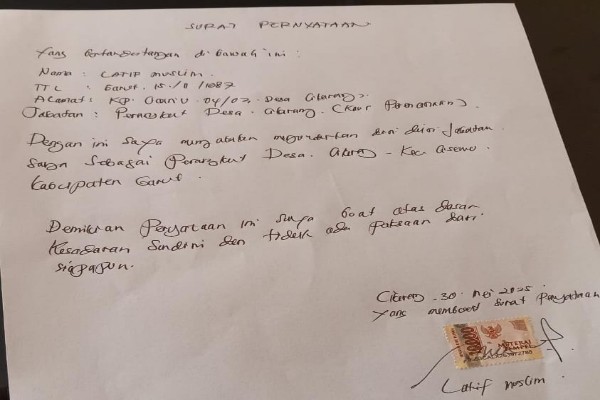 SURAT PERNYATAAN
Yang bertandatangan di bawah ini :
Nama : LATIF MUSLIM.
TTL : Garut. 15
Alamat : KP. 04/03. Desa Cikarang
Jabatan : Perangkat Desa. Cikarang. (Kaur Perencanaan).
Dengan ini saya menyatakan mengundurkan diri dari Jabatan
saya sebagai Perangkat Desa. Cikarang - Kec. Cisewu
Kabupaten Garut.
Demikian Pernyataan ini saya buat atas dasar
Kesadaran Sendiri dan tidak ada paksaan dari
siapapun.
Cikarang. 30. Mei 2025.
Yang membuat Surat Pernyataan
10000
METERAI
TEMPEL
Latif muslim.